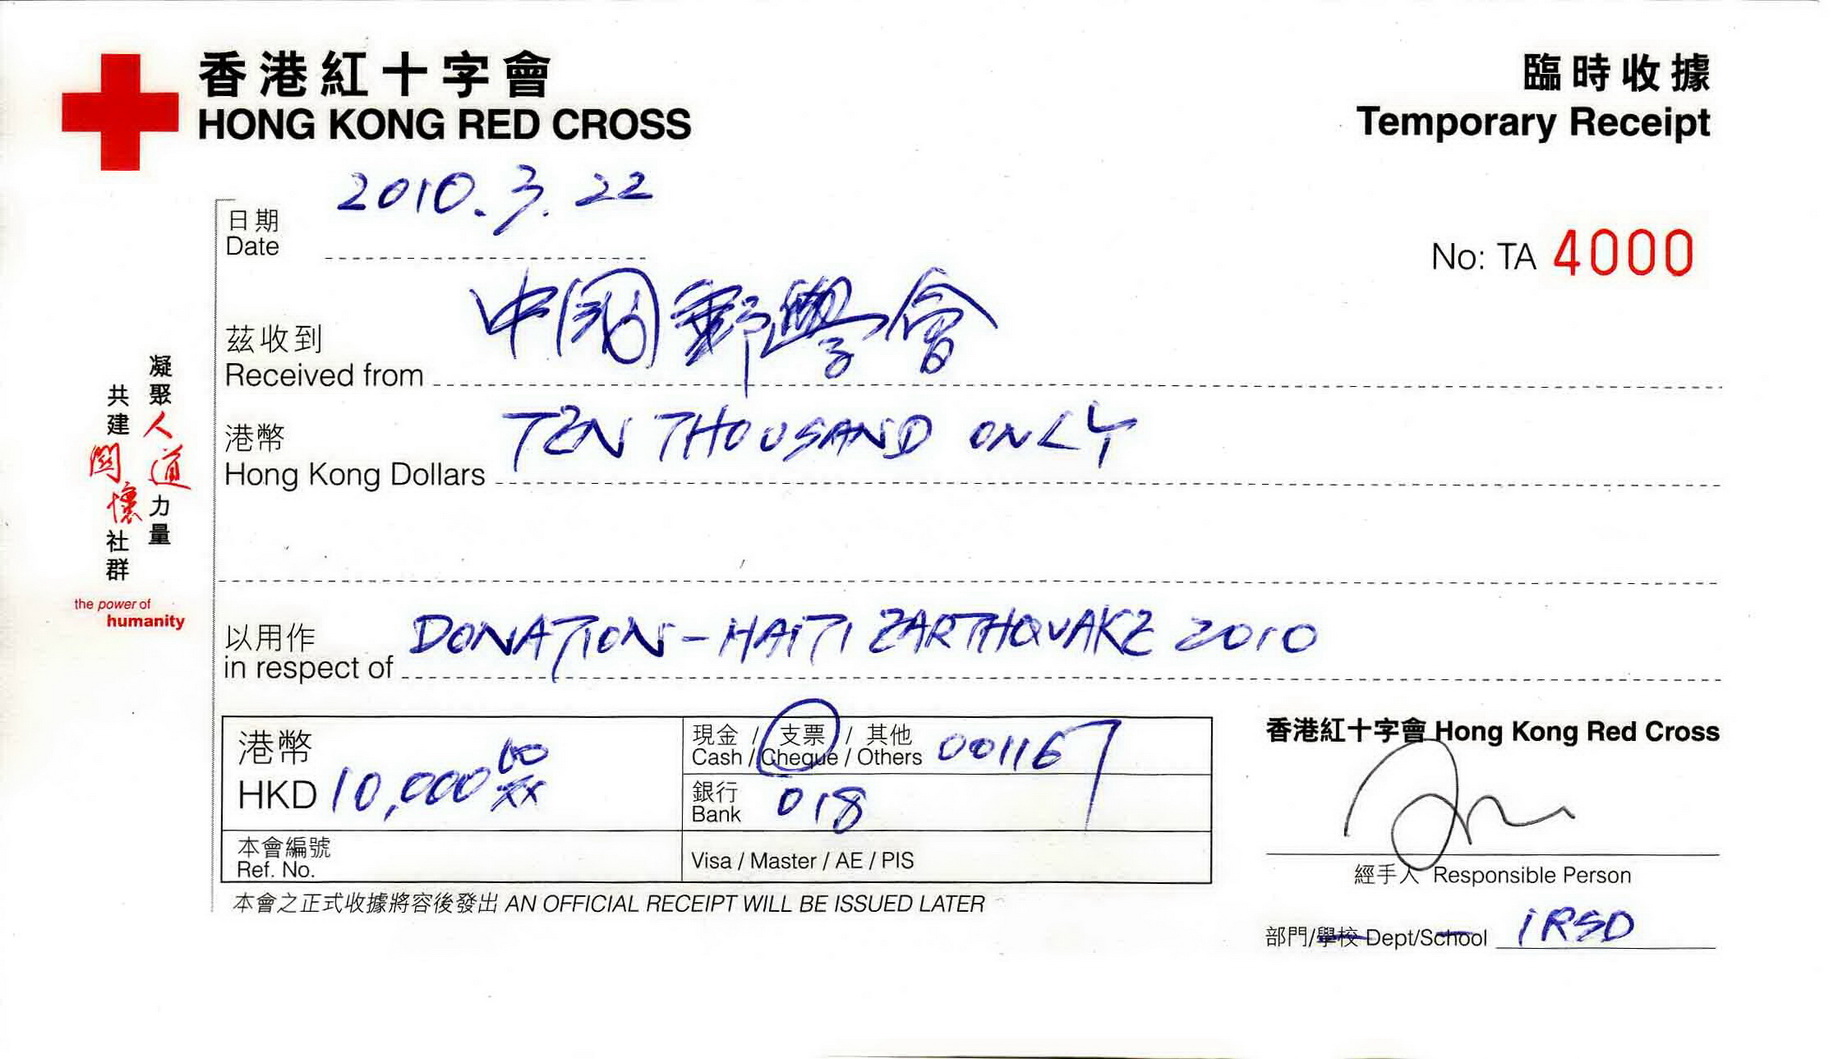 香港紅十字會
HONG KONG RED CROSS
臨時收據
Temporary Receipt
日期
Date
2010.3.22
No: TA 4000
茲收到
Received from
中國郵學會
港幣
Hong Kong Dollars
TEN THOUSAND ONLY
凝聚人道力量
共建關懷社群
the power of
humanity
以用作
in respect of
DONATION - HAITI EARTHQUAKE 2010
港幣
HKD 10,000 00/xx
現金 / 支票 / 其他
Cash / Cheque / Others 001167
銀行
Bank 018
本會編號
Ref. No.
Visa / Master / AE / PIS
本會之正式收據將容後發出 AN OFFICIAL RECEIPT WILL BE ISSUED LATER
香港紅十字會 Hong Kong Red Cross
經手人 Responsible Person
部門/學校 Dept/School IRSD